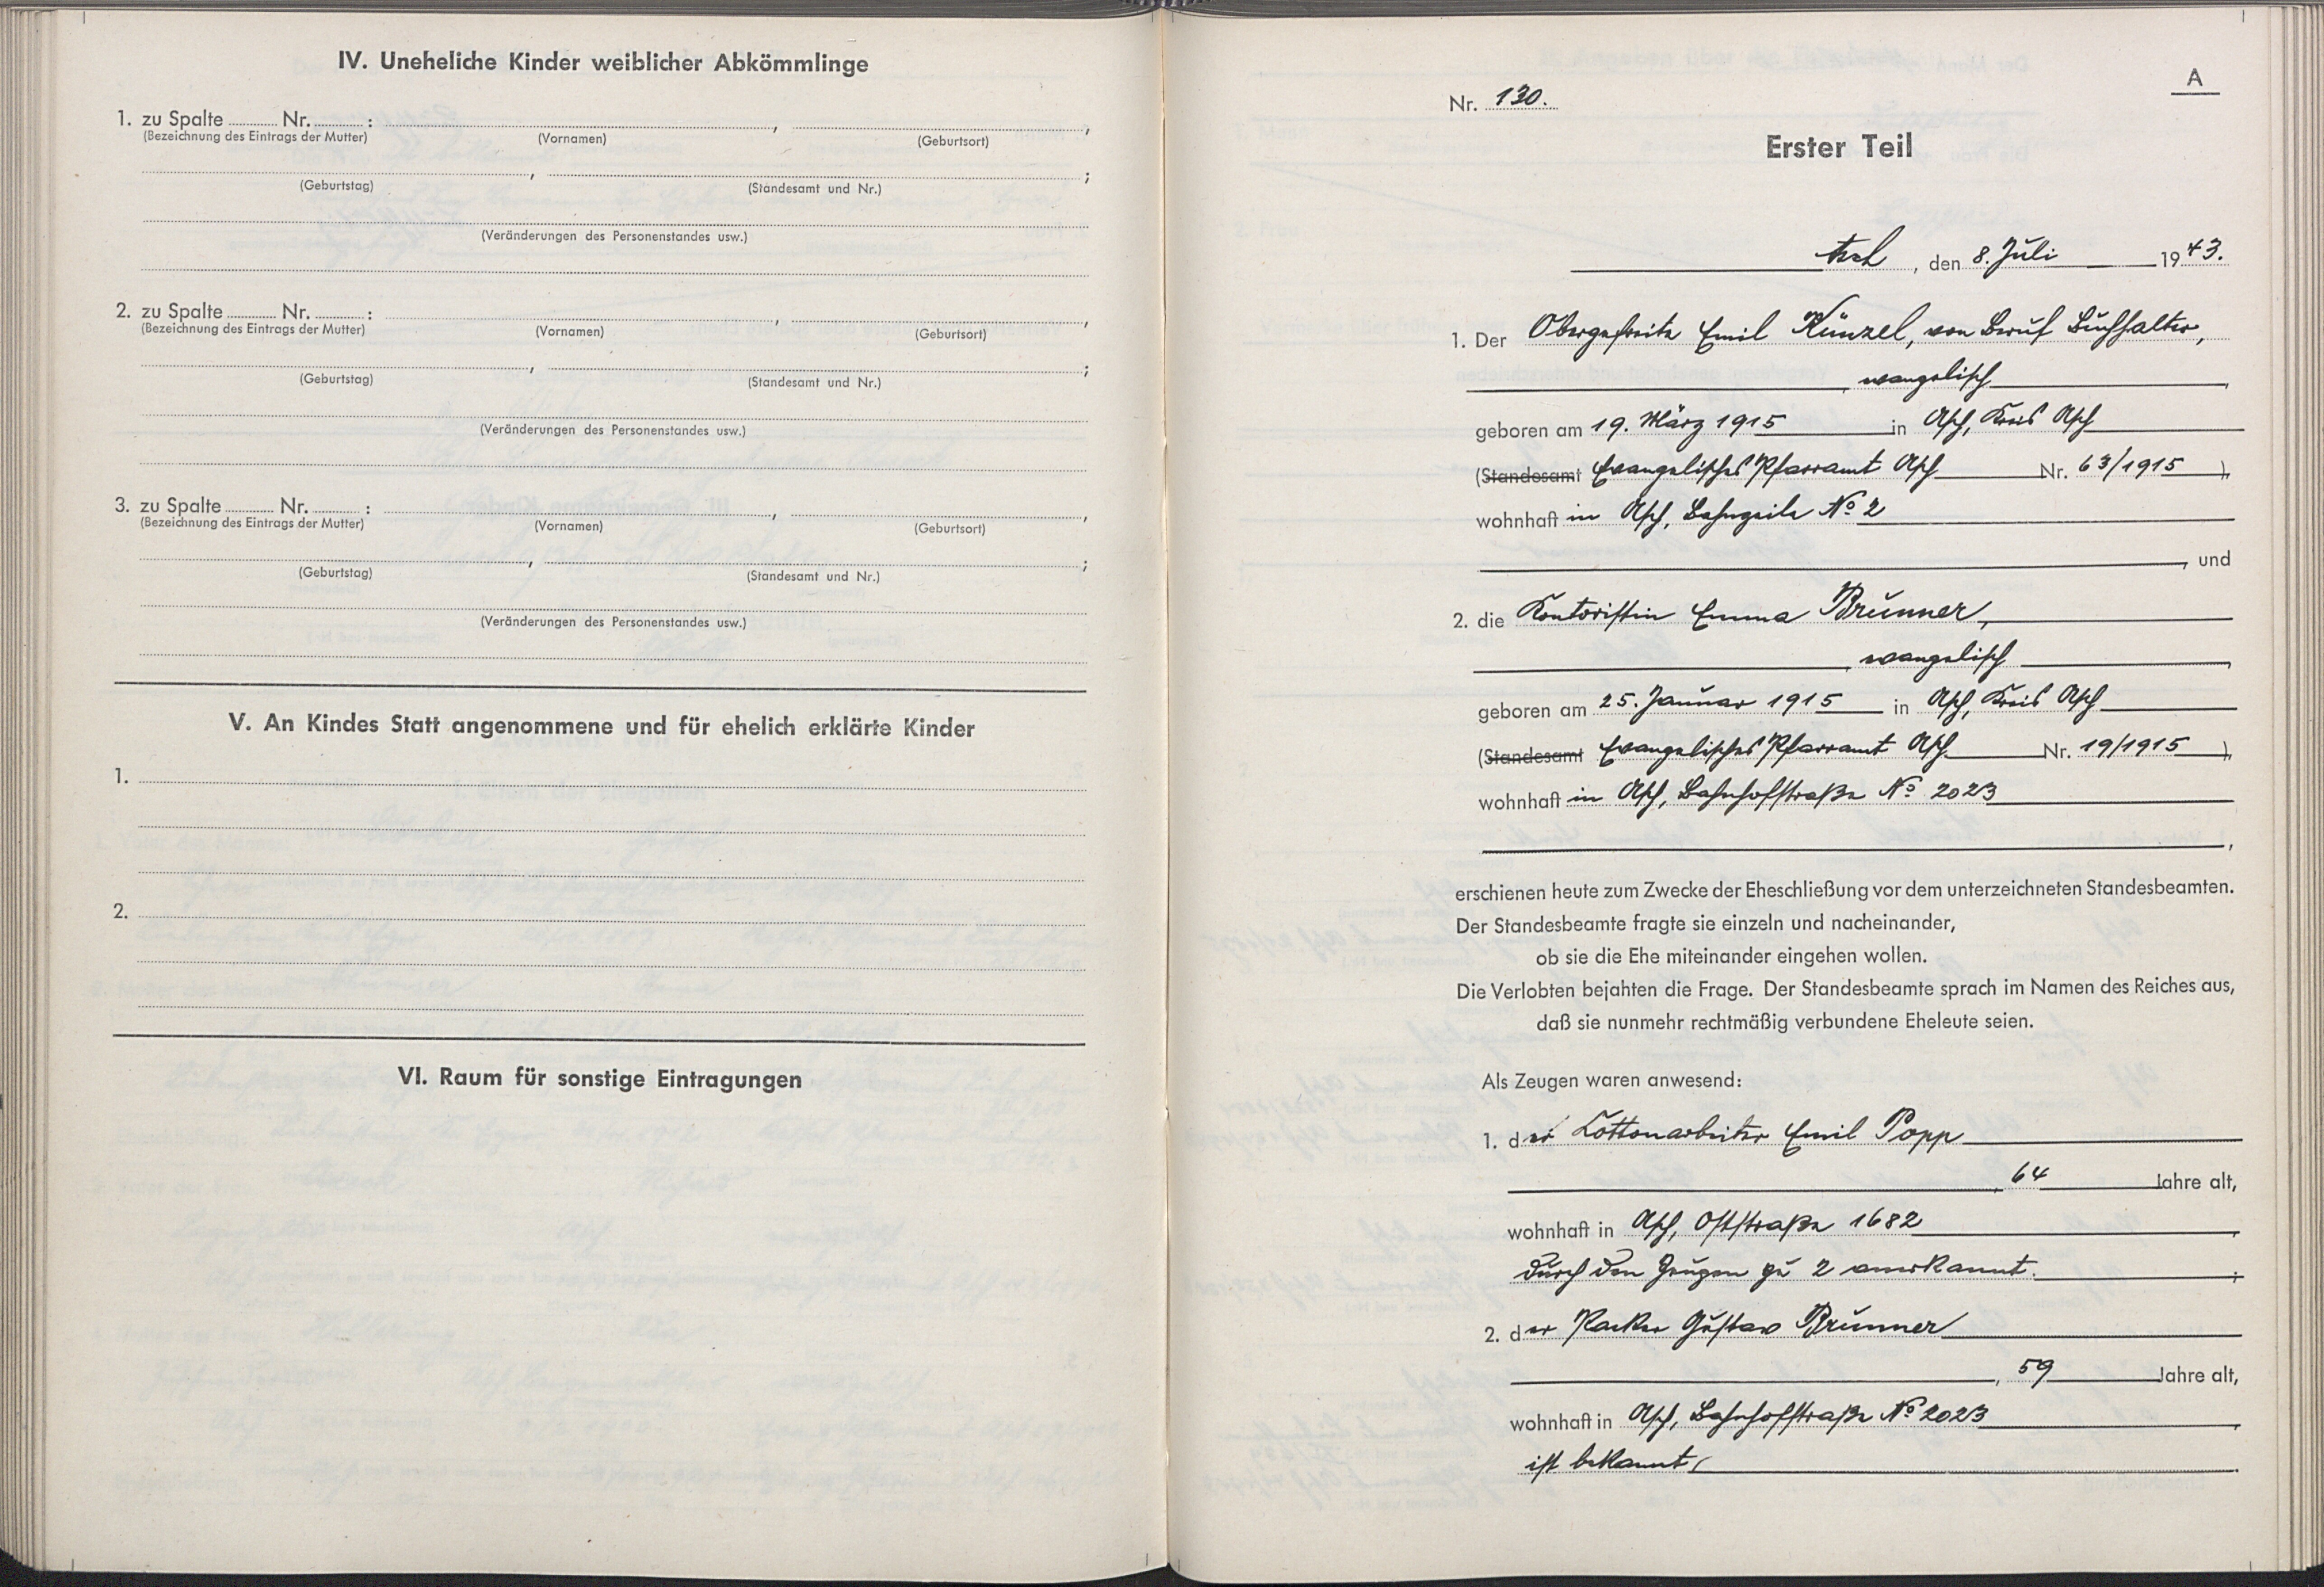 IV. Uneheliche Kinder weiblicher Abkömmlinge
1. zu Spalte Nr. : , ,
(Bezeichnung des Eintrags der Mutter) (Vornamen) (Geburtsort)
, ;
(Geburtstag) (Standesamt und Nr.)
(Veränderungen des Personenstandes usw.)
2. zu Spalte Nr. : , ,
(Bezeichnung des Eintrags der Mutter) (Vornamen) (Geburtsort)
, ;
(Geburtstag) (Standesamt und Nr.)
(Veränderungen des Personenstandes usw.)
3. zu Spalte Nr. : , ,
(Bezeichnung des Eintrags der Mutter) (Vornamen) (Geburtsort)
, ;
(Geburtstag) (Standesamt und Nr.)
(Veränderungen des Personenstandes usw.)
V. An Kindes Statt angenommene und für ehelich erklärte Kinder
1.
2.
VI. Raum für sonstige Eintragungen
A
Nr. 130.
Erster Teil
Asch, den 8. Juli 1943.
1. Der Obergefreite Emil Künzel, von Beruf Buchhalter,
, evangelisch,
geboren am 19. März 1915 in Asch, Kreis Asch
(Standesamt Evangelisches Pfarramt Asch Nr. 63/1915 ),
wohnhaft in Asch, Bahnzeile No 2
, und
2. die Kontoristin Emma Brunner,
, evangelisch,
geboren am 25. Januar 1915 in Asch, Kreis Asch
(Standesamt Evangelisches Pfarramt Asch Nr. 19/1915 ),
wohnhaft in Asch, Bahnhofstraße No 2023
,
erschienen heute zum Zwecke der Eheschließung vor dem unterzeichneten Standesbeamten.
Der Standesbeamte fragte sie einzeln und nacheinander,
ob sie die Ehe miteinander eingehen wollen.
Die Verlobten bejahten die Frage. Der Standesbeamte sprach im Namen des Reiches aus,
daß sie nunmehr rechtmäßig verbundene Eheleute seien.
Als Zeugen waren anwesend:
1. der Cottonarbeiter Emil Popp
, 64 Jahre alt,
wohnhaft in Asch, Oststraße 1682,
durch den Zeugen zu 2 anerkannt. ;
2. der Packer Gustav Brunner
, 59 Jahre alt,
wohnhaft in Asch, Bahnhofstraße No 2023,
ist bekannt.